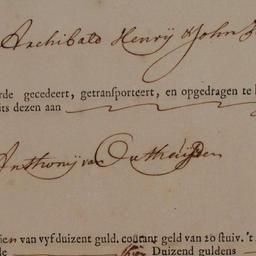 Archibald Henrÿ & John
rde gecedeert, getransporteert, en opgedragen te
its dezen aan
Anthonij van Outheusden
van vyfduizent guld. courant geld van 20 stuiv. 't
Duizend guldens